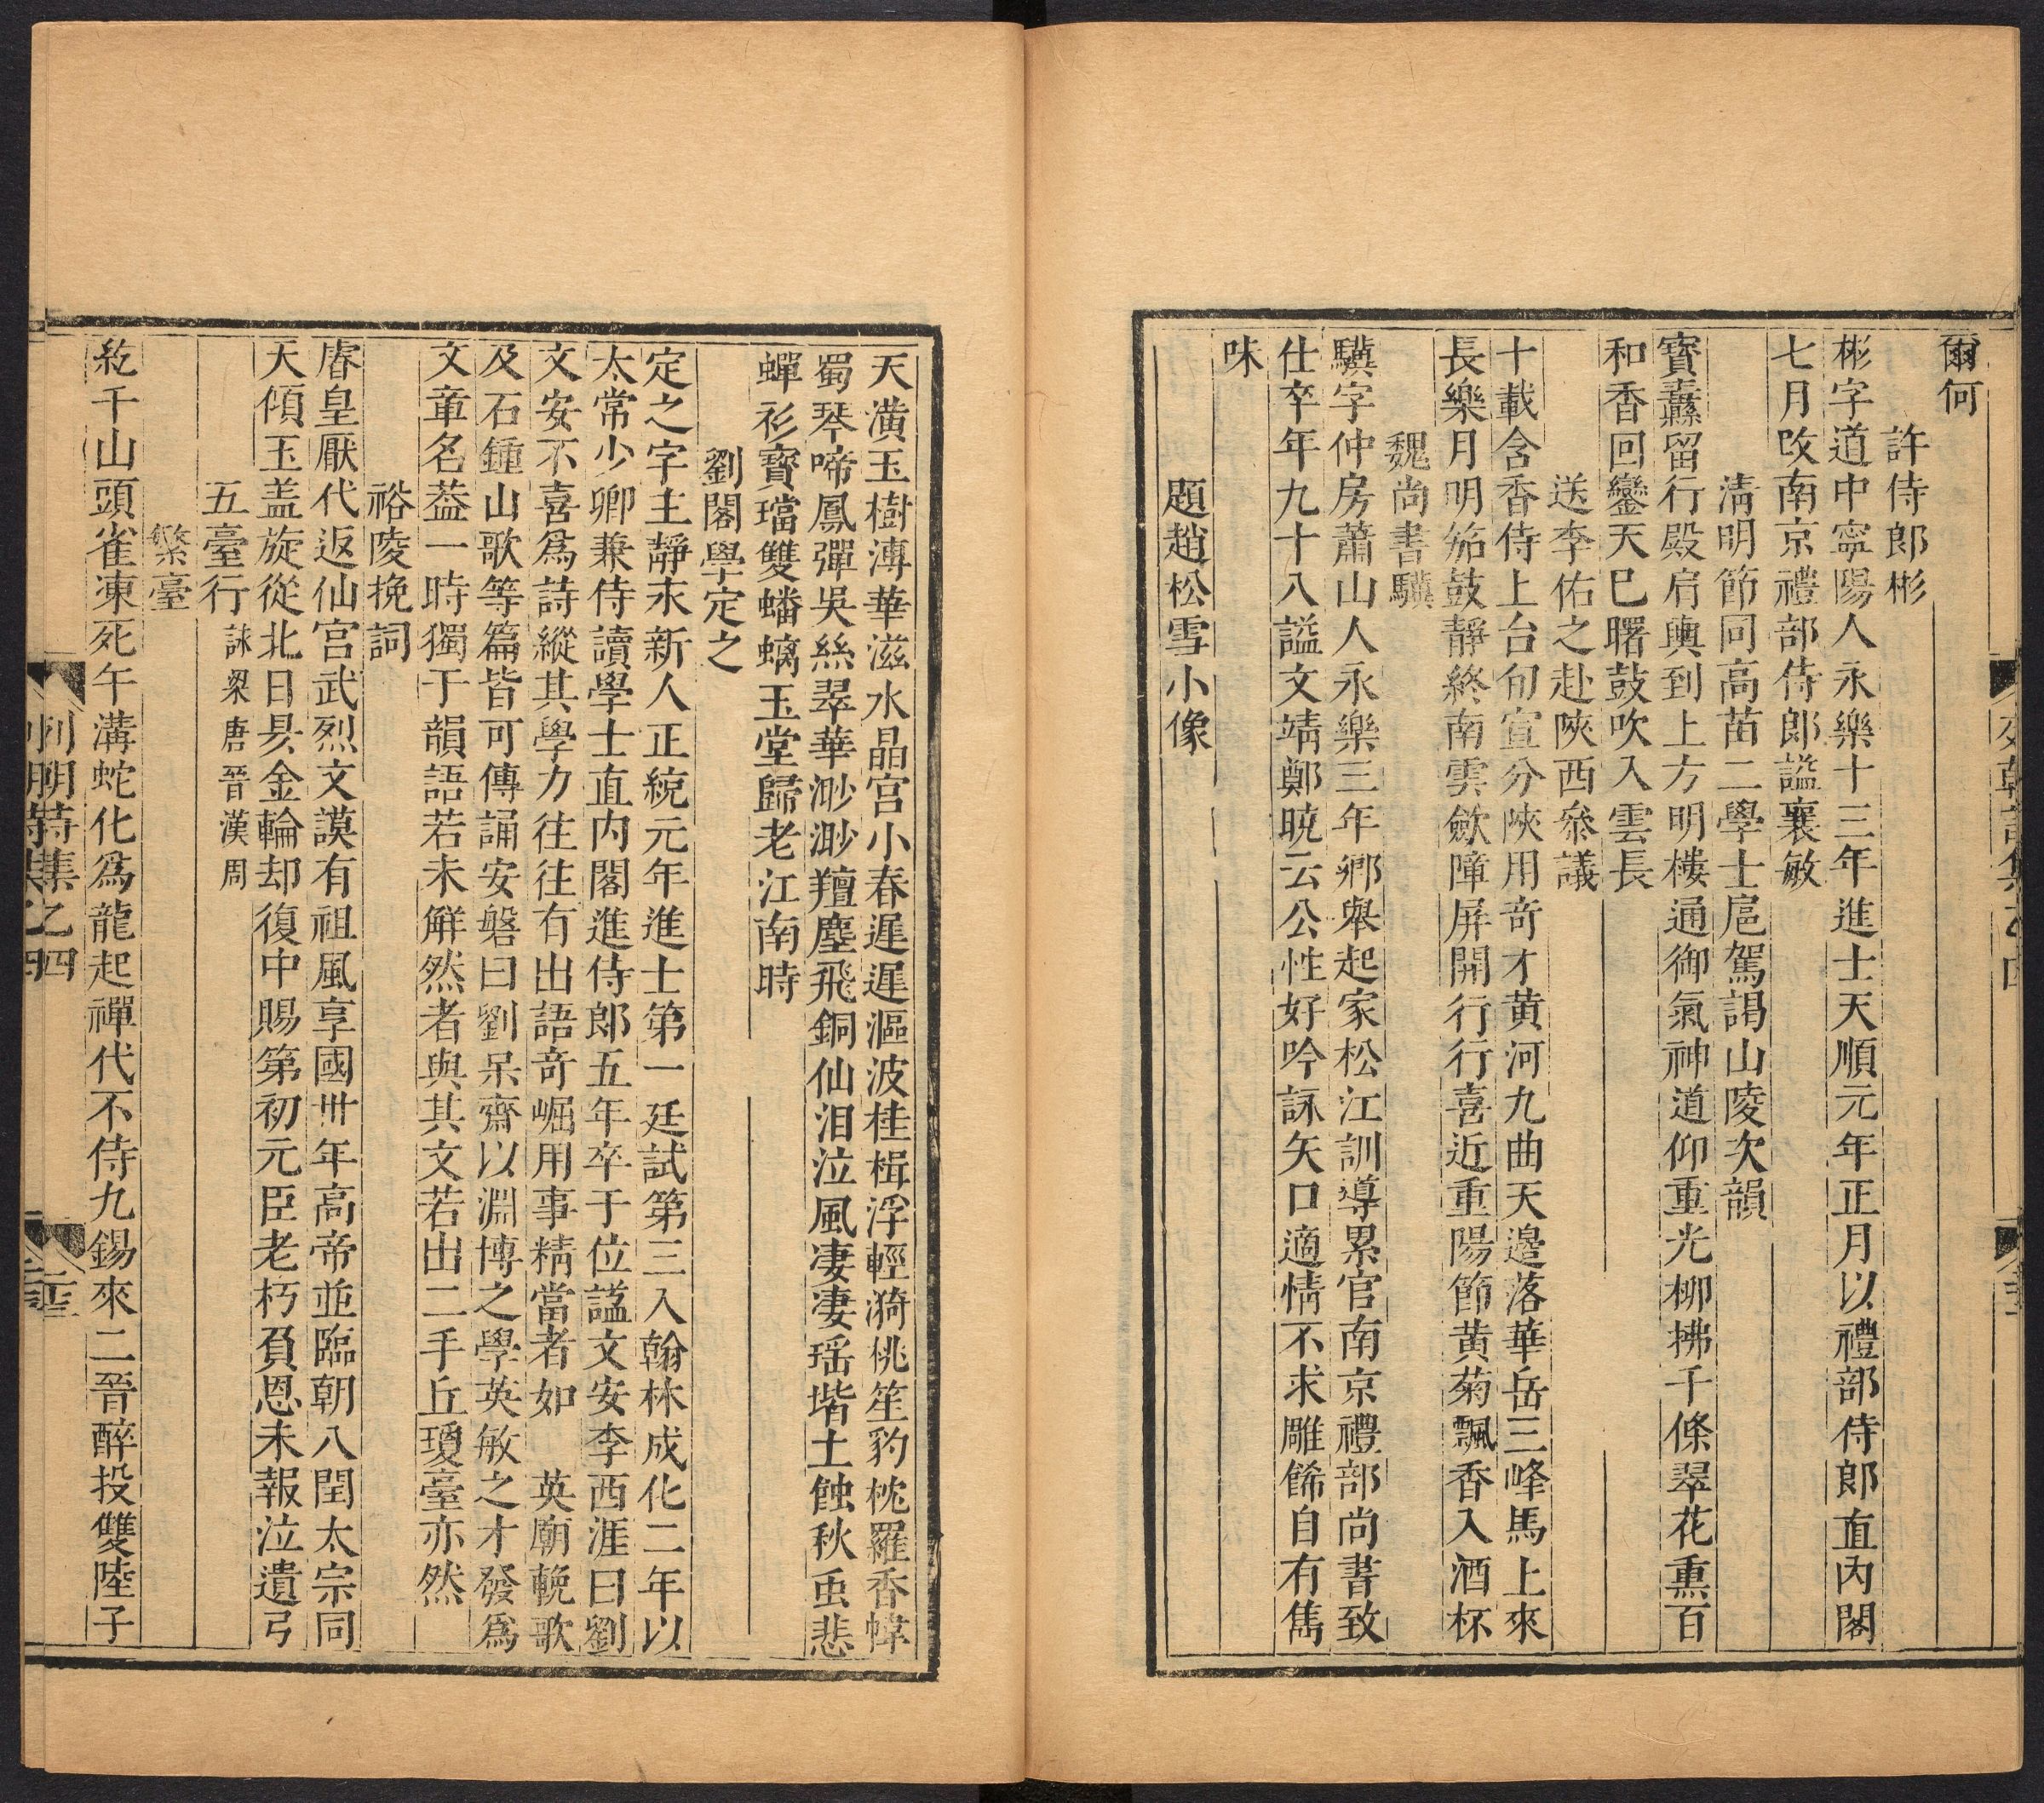 爾何
許侍郎彬
彬字道中寧陽人永樂十三年進士天順元年正月以禮部侍郎直內閣
七月攺南京禮部侍郎謚襄敏
清明節同高苗二學士扈駕謁山陵次韻
寶纛留行殿肩輿到上方明樓通御氣神道仰重光柳拂千條翠花熏百
和香回鑾天巳曙鼓吹入雲長
送李佑之赴陝西叅議
十載含香侍上台旬宣分陝用竒才黄河九曲天邉落華岳三峰馬上來
長樂月明笳鼓靜終南雲歛障屏開行行喜近重陽節黄菊飄香入酒杯
魏尚書驥
驥字仲房蕭山人永樂三年鄉舉起家松江訓導累官南京禮部尚書致
仕卒年九十八謚文靖鄭曉云公性好吟詠矢口適情不求雕餙自有雋
味
題趙松雪小像
天潢玉樹漙華滋水晶宫小春遲遲漚波桂楫浮輕漪桃笙豹枕羅香幃
蜀琴啼鳳彈吳絲翠華渺渺羶塵飛銅仙泪泣風凄凄瑶堦土蝕秋䖝悲
蟬衫寳璫雙蟠螭玉堂歸老江南時
劉閣學定之
定之字主靜永新人正統元年進士第一廷試第三入翰林成化二年以
太常少卿兼侍讀學士直内閣進侍郎五年卒于位謚文安李西涯曰劉
文安不喜爲詩縱其學力往往有出語竒崛用事精當者如　英廟輓歌
及石鍾山歌等篇皆可傳誦安磐曰劉呆齋以淵博之學英敏之才發爲
文章名葢一時獨于韻語若未解然者與其文若出二手丘瓊臺亦然
裕陵挽詞
睿皇厭代返仙宫武烈文謨有祖風享國卅年高帝並臨朝八閏太宗同
天傾玉盖旋從北日昃金輪却復中賜第初元臣老朽負恩未報泣遺弓
五臺行 詠梁唐晋漢周
繁臺
紇干山頭雀凍死午溝蛇化爲龍起禪代不侍九錫來二晉醉投雙陸子
列朝詩集乙之四